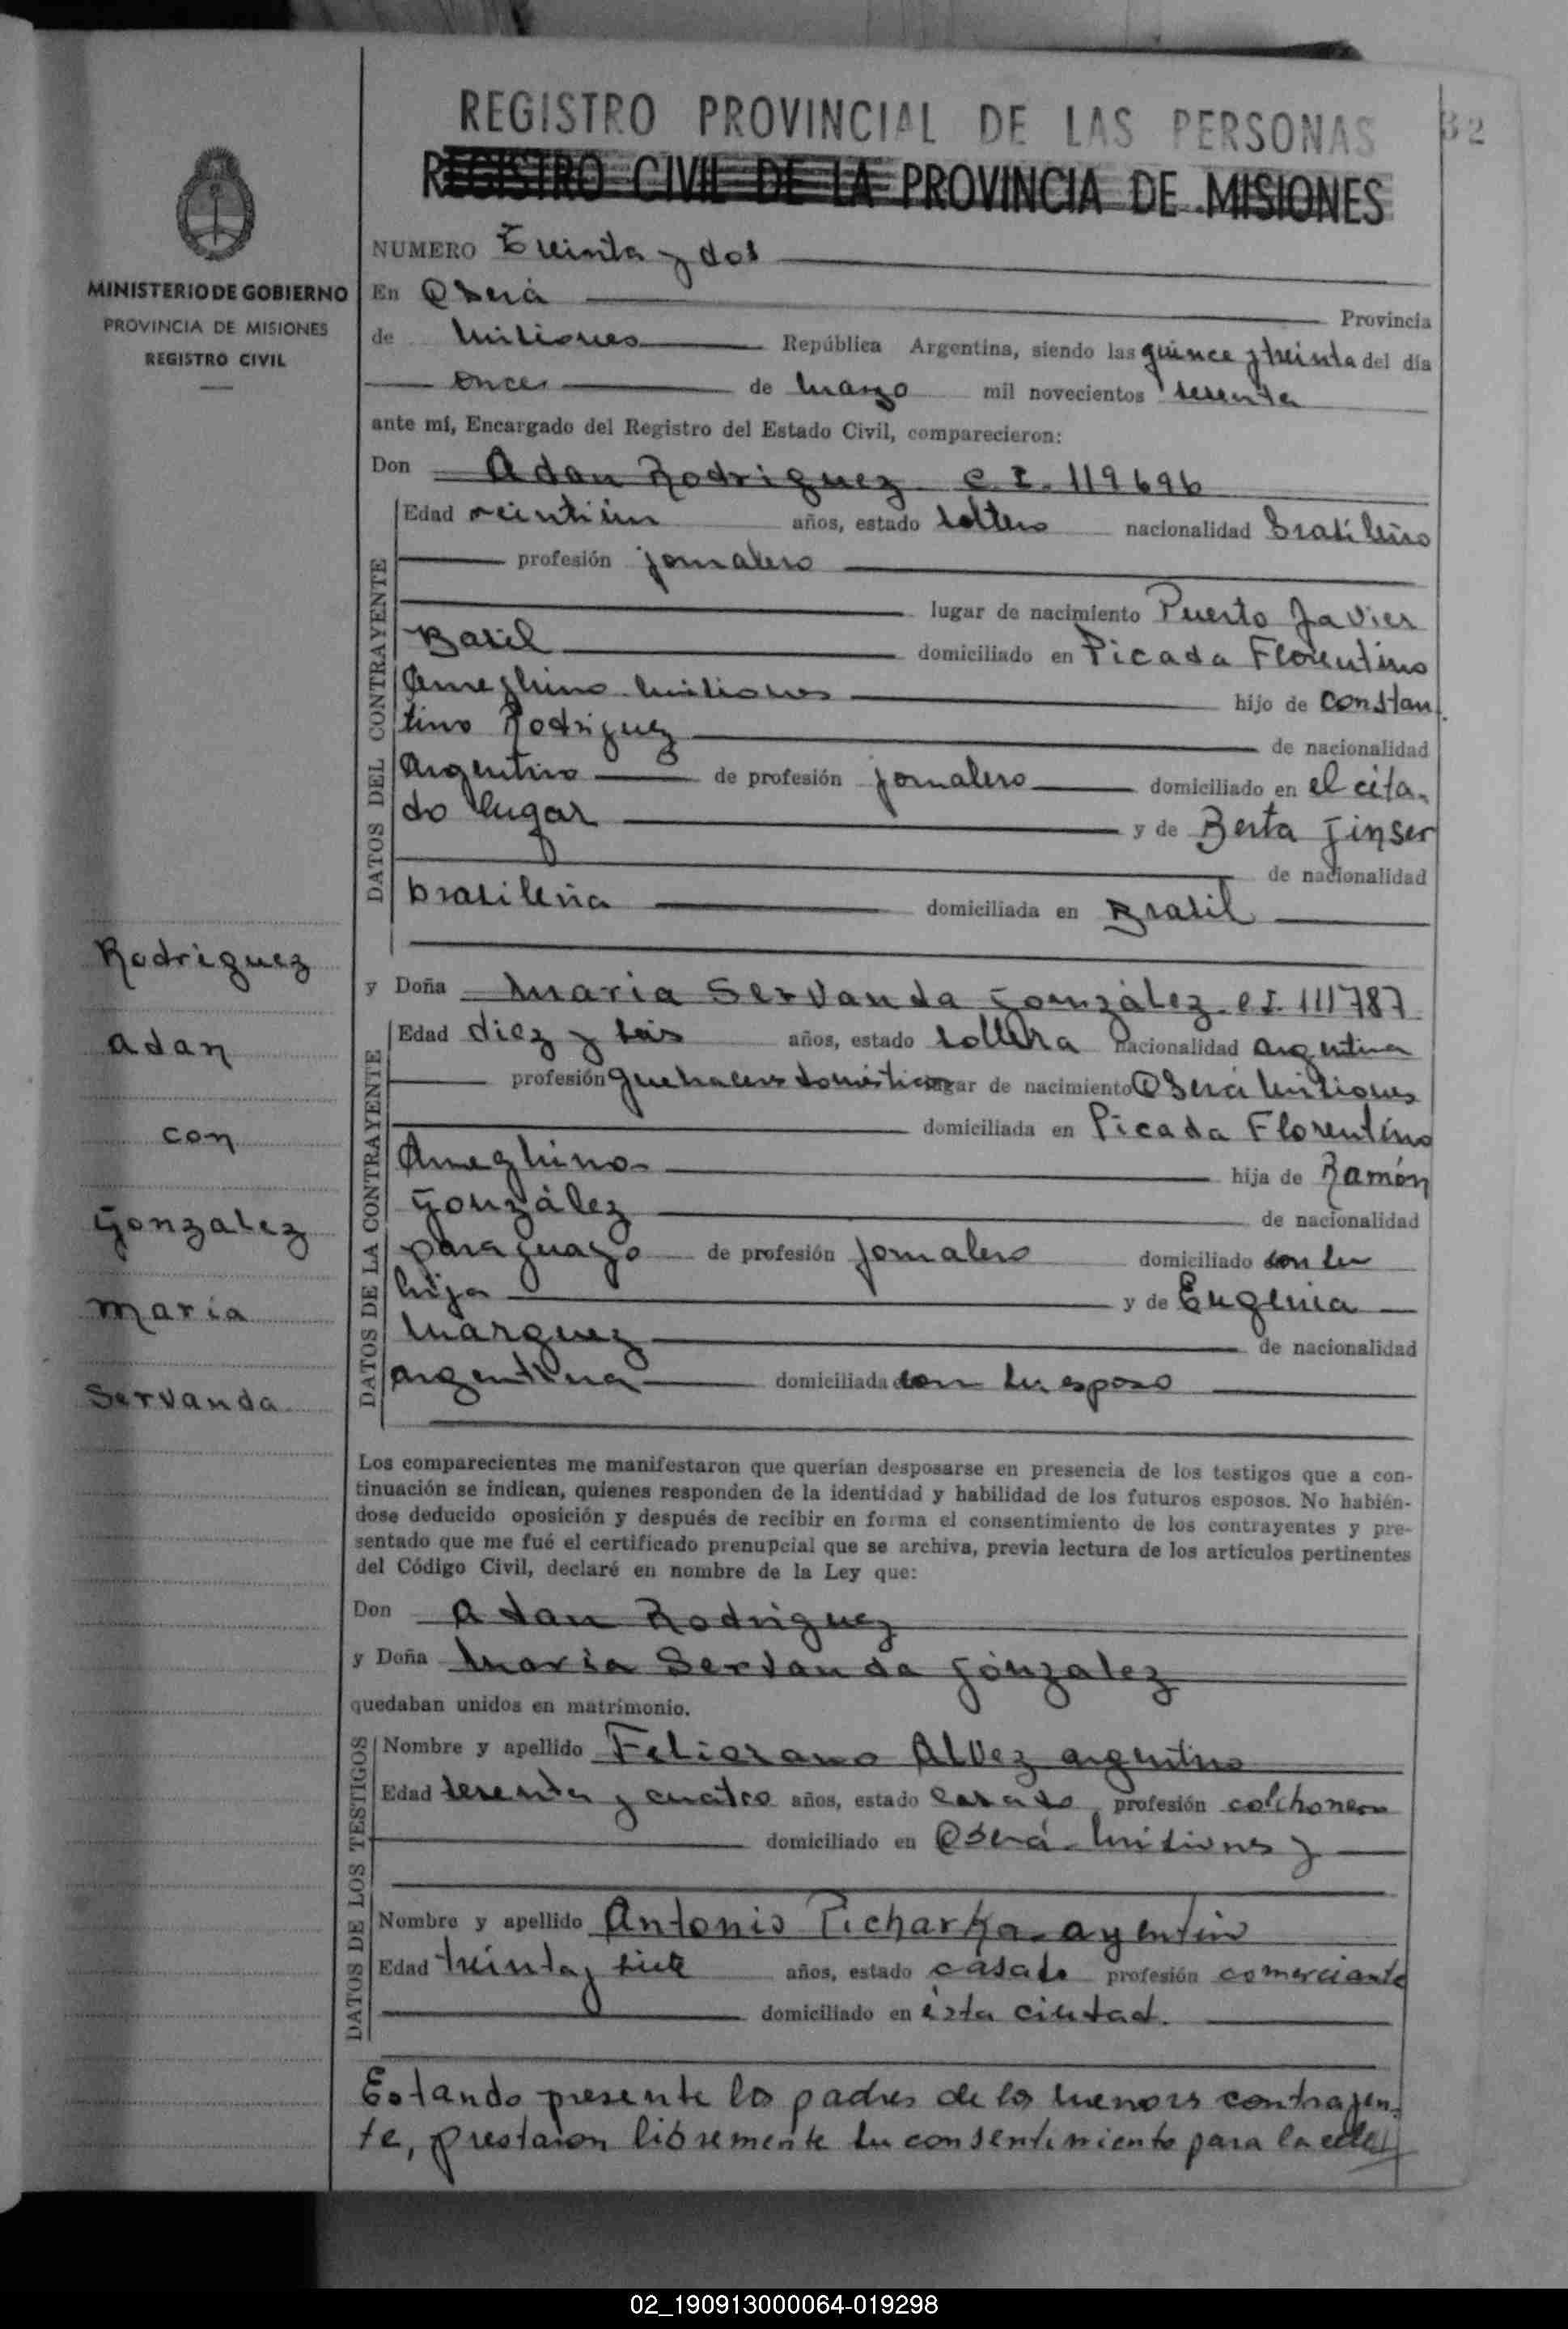 REGISTRO PROVINCIAL DE LAS PERSONAS
32
REGISTRO CIVIL DE LA PROVINCIA DE MISIONES
MINISTERIO DE GOBIERNO
PROVINCIA DE MISIONES
REGISTRO CIVIL
NUMERO Treinta y dos
En Oberá Provincia
de Misiones República Argentina, siendo las quince y treinta del día
once de marzo mil novecientos sesenta
ante mí, Encargado del Registro del Estado Civil, comparecieron:
Don Adan Rodriguez C.I. 119696
DATOS DEL CONTRAYENTE
Edad veintiún años, estado soltero nacionalidad brasileño
profesión jornalero
lugar de nacimiento Puerto Javier
Brasil domiciliado en Picada Florentino
Ameghino Misiones hijo de Constan
tino Rodriguez de nacionalidad
argentino de profesión jornalero domiciliado en el cita-
do lugar y de Berta Jinser
de nacionalidad
brasileña domiciliada en Brasil
y Doña Maria Servanda González C.I. 111787
DATOS DE LA CONTRAYENTE
Edad diez y seis años, estado soltera nacionalidad argentina
profesión quehaceres domésticos lugar de nacimiento Oberá Misiones
domiciliada en Picada Florentino
Ameghino hija de Ramón
González de nacionalidad
paraguayo de profesión jornalero domiciliado con su
hija y de Eugenia
Marquez de nacionalidad
argentina domiciliada con su esposo
Los comparecientes me manifestaron que querían desposarse en presencia de los testigos que a con-
tinuación se indican, quienes responden de la identidad y habilidad de los futuros esposos. No habién-
dose deducido oposición y después de recibir en forma el consentimiento de los contrayentes y pre-
sentado que me fué el certificado prenupcial que se archiva, previa lectura de los artículos pertinentes
del Código Civil, declaré en nombre de la Ley que:
Don Adan Rodriguez
y Doña Maria Servanda González
quedaban unidos en matrimonio.
DATOS DE LOS TESTIGOS
Nombre y apellido Feliciano Alvez argentino
Edad sesenta y cuatro años, estado casado profesión colchonero
domiciliado en Oberá Misiones y
Nombre y apellido Antonio Picharka argentino
Edad treinta y siete años, estado casado profesión comerciante
domiciliado en ésta ciudad.
Estando presente los padres de los menores contrayen-
te, prestaron libremente su consentimiento para la
Rodriguez
Adan
con
Gonzalez
Maria
Servanda
02_190913000064-019298